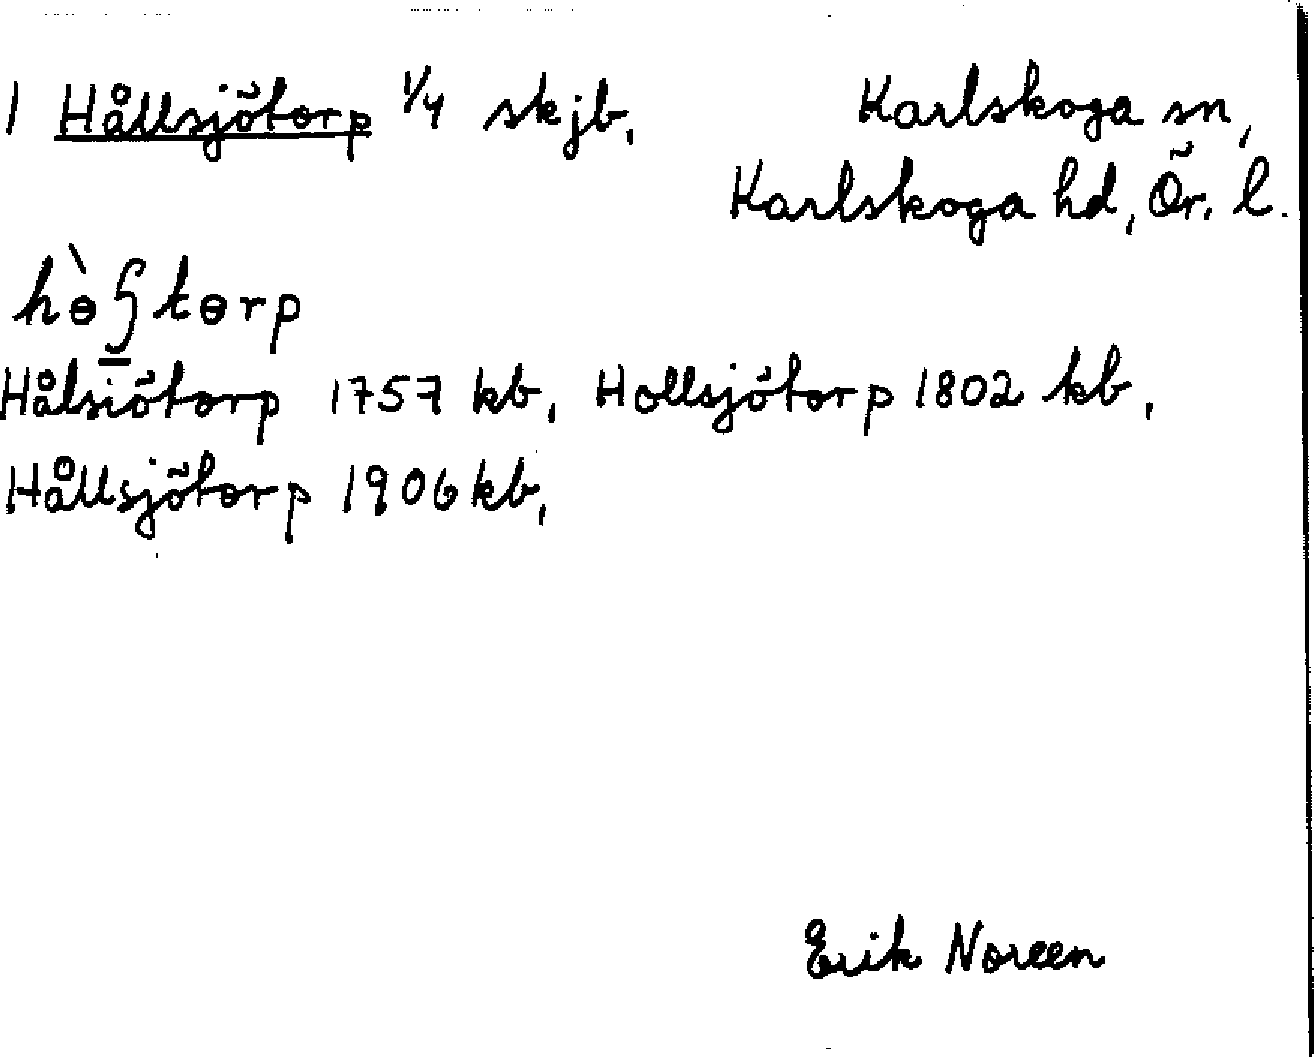 1 Hållsjötorp 1/4 skjb. Karlskoga sn,
Karlskoga hd, Ör. l.
Hålsiötorp 1757 kb, Hollsjötorp 1802 kb,
Hållsjötorp 1906 kb,
Erik Noreen